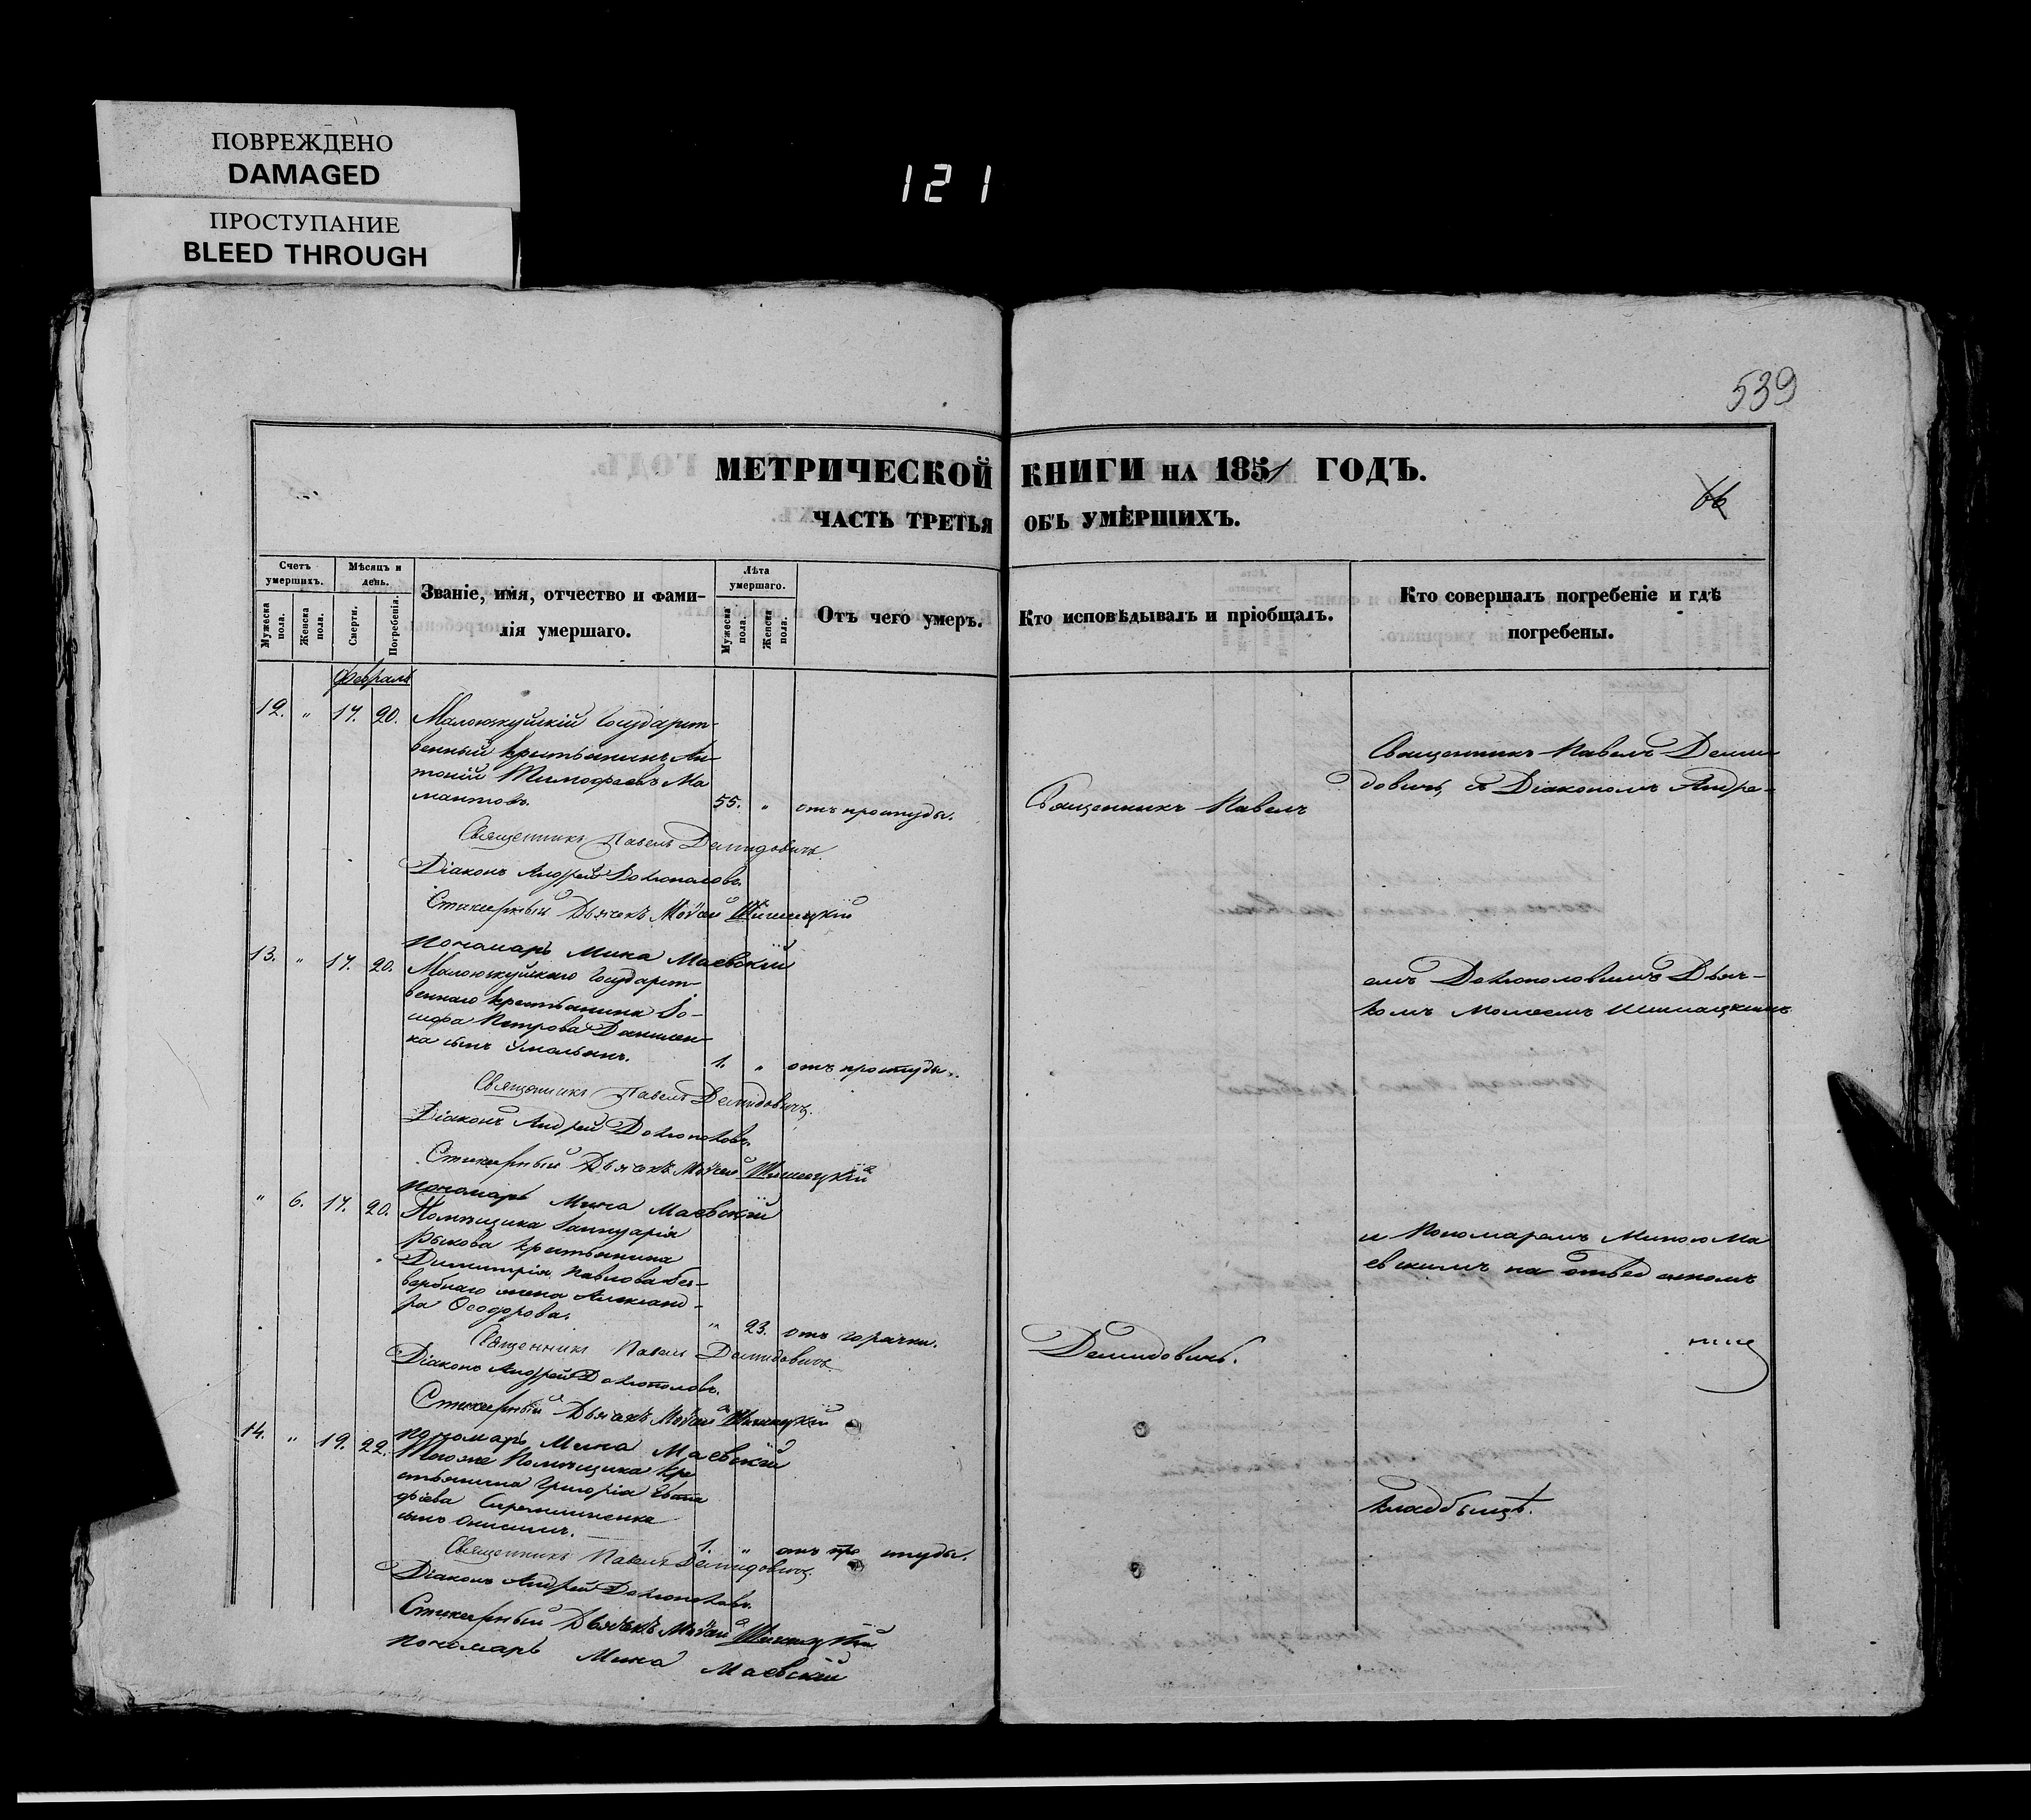 ПОВРЕЖДЕНО
DAMAGED
ПРОСТУПАНИЕ
BLEED THROUGH
121
539
МЕТРИЧЕСКОЙ КНИГИ НА 1851 ГОДЪ.
66
ЧАСТЬ ТРЕТЬЯ ОБЪ УМЕРШИХЪ.
Счетъ умершихъ.
Мужеска пола.
Женска пола.
Мѣсяцъ и день.
Смерти.
Погребенія.
Званіе, имя, отчество и фами-
лія умершаго.
Лѣта умершаго.
Мужеска пола.
Женска пола.
Отъ чего умеръ.
Кто исповѣдывалъ и пріобщалъ.
Кто совершалъ погребеніе и гдѣ
погребены.
Февраля
12. " 17. 20. Государст-
венный крестьянинъ Ан-
тоній Тимофеевъ Ма
мантовъ. 55. " отъ простуды.
Священникъ Павелъ Демидовичъ
Діаконъ Андрей
Стихарный Дьячекъ Мойсей
Пономарь Мина Маевскій
13. " 17. 20. Государст-
веннаго крестьянина Іо-
сифа Петрова Данилен-
ка сынъ 1. " отъ простуды.
Священникъ Павелъ Демидовичъ
Діаконъ Андрей
Стихарный Дьячекъ Мойсей
Пономарь Мина Маевскій
" 6. 17. 20. Помѣщика Іаннуарія
крестьянина
Димитрія Павлова
жена Александ-
ра Ѳеодорова. " 23. отъ горячки.
Священникъ Павелъ Демидовичъ
Діаконъ Андрей
Стихарный Дьячекъ Мойсей
Пономарь Мина Маевскій
14. " 19. 22. Тогоже Помѣщика кре
стьянина Григорія
сынъ Онисимъ. 1. " отъ простуды.
Священникъ Павелъ Демидовичъ
Діаконъ Андрей
Стихарный Дьячекъ Мойсей
Пономарь Мина Маевскій
Священникъ Павелъ
Демидовичъ.
Священникъ Павелъ Деми-
довичъ, съ Діакономъ Андре-
емъ Дьяч-
комъ Моисеемъ
и Пономаремъ Миною Ма
евскимъ на отведенномъ
кладбищѣ.